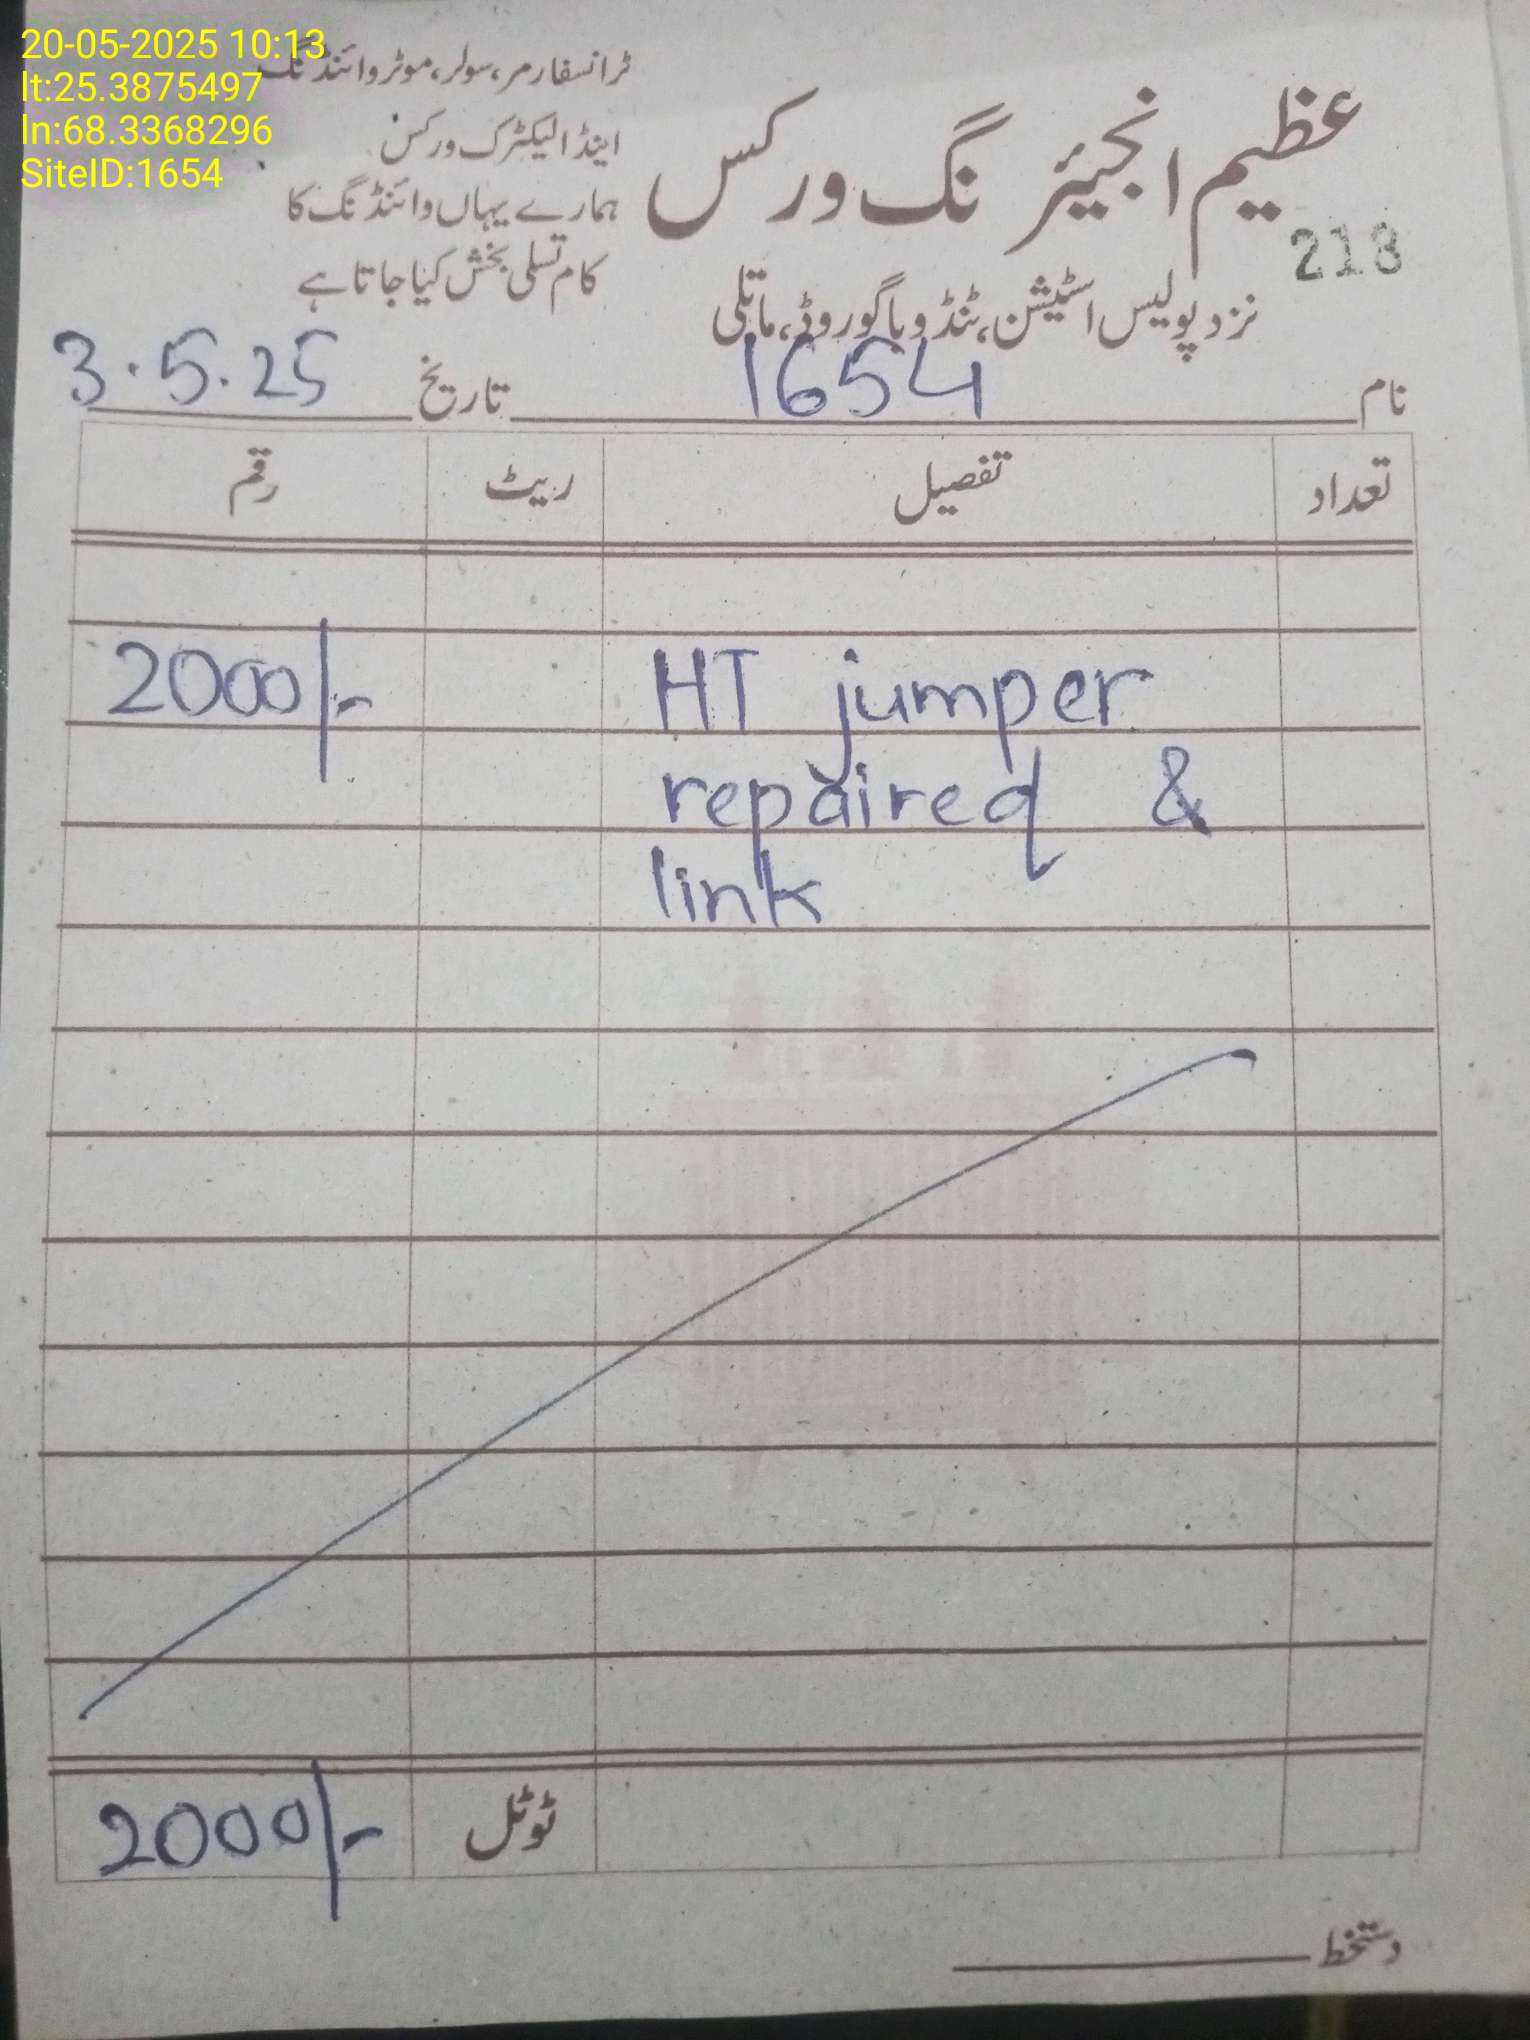 20-05-2025 10:13
lt:25.3875497
ln:68.3368296
SiteID:1654
ٹرانسفارمر، سولر، موٹر وائنڈنگ
اینڈ الیکٹرک ورکس
ہمارے یہاں وائنڈنگ کا
کام تسلی بخش کیا جاتا ہے
عظیم انجیئرنگ ورکس
213
نزد پولیس اسٹیشن، ٹنڈو باگو روڈ، ماتلی
نام 1654 تاریخ 3.5.25
تعداد تفصیل ریٹ رقم
HT jumper 2000/-
repaired &
link
ٹوٹل 2000/-
دستخط